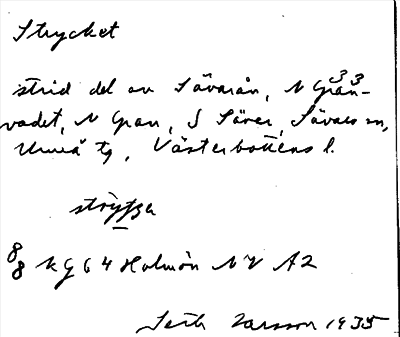 Strycket
strid del av Sävarån, N Gran-
33
vadet, N Gran, S Sävar, Sävars sn,
Umeå tg, Västerbottens l.
strytjə
8/8 KG 64 Holmön NV A2
Seth Larsson 1935